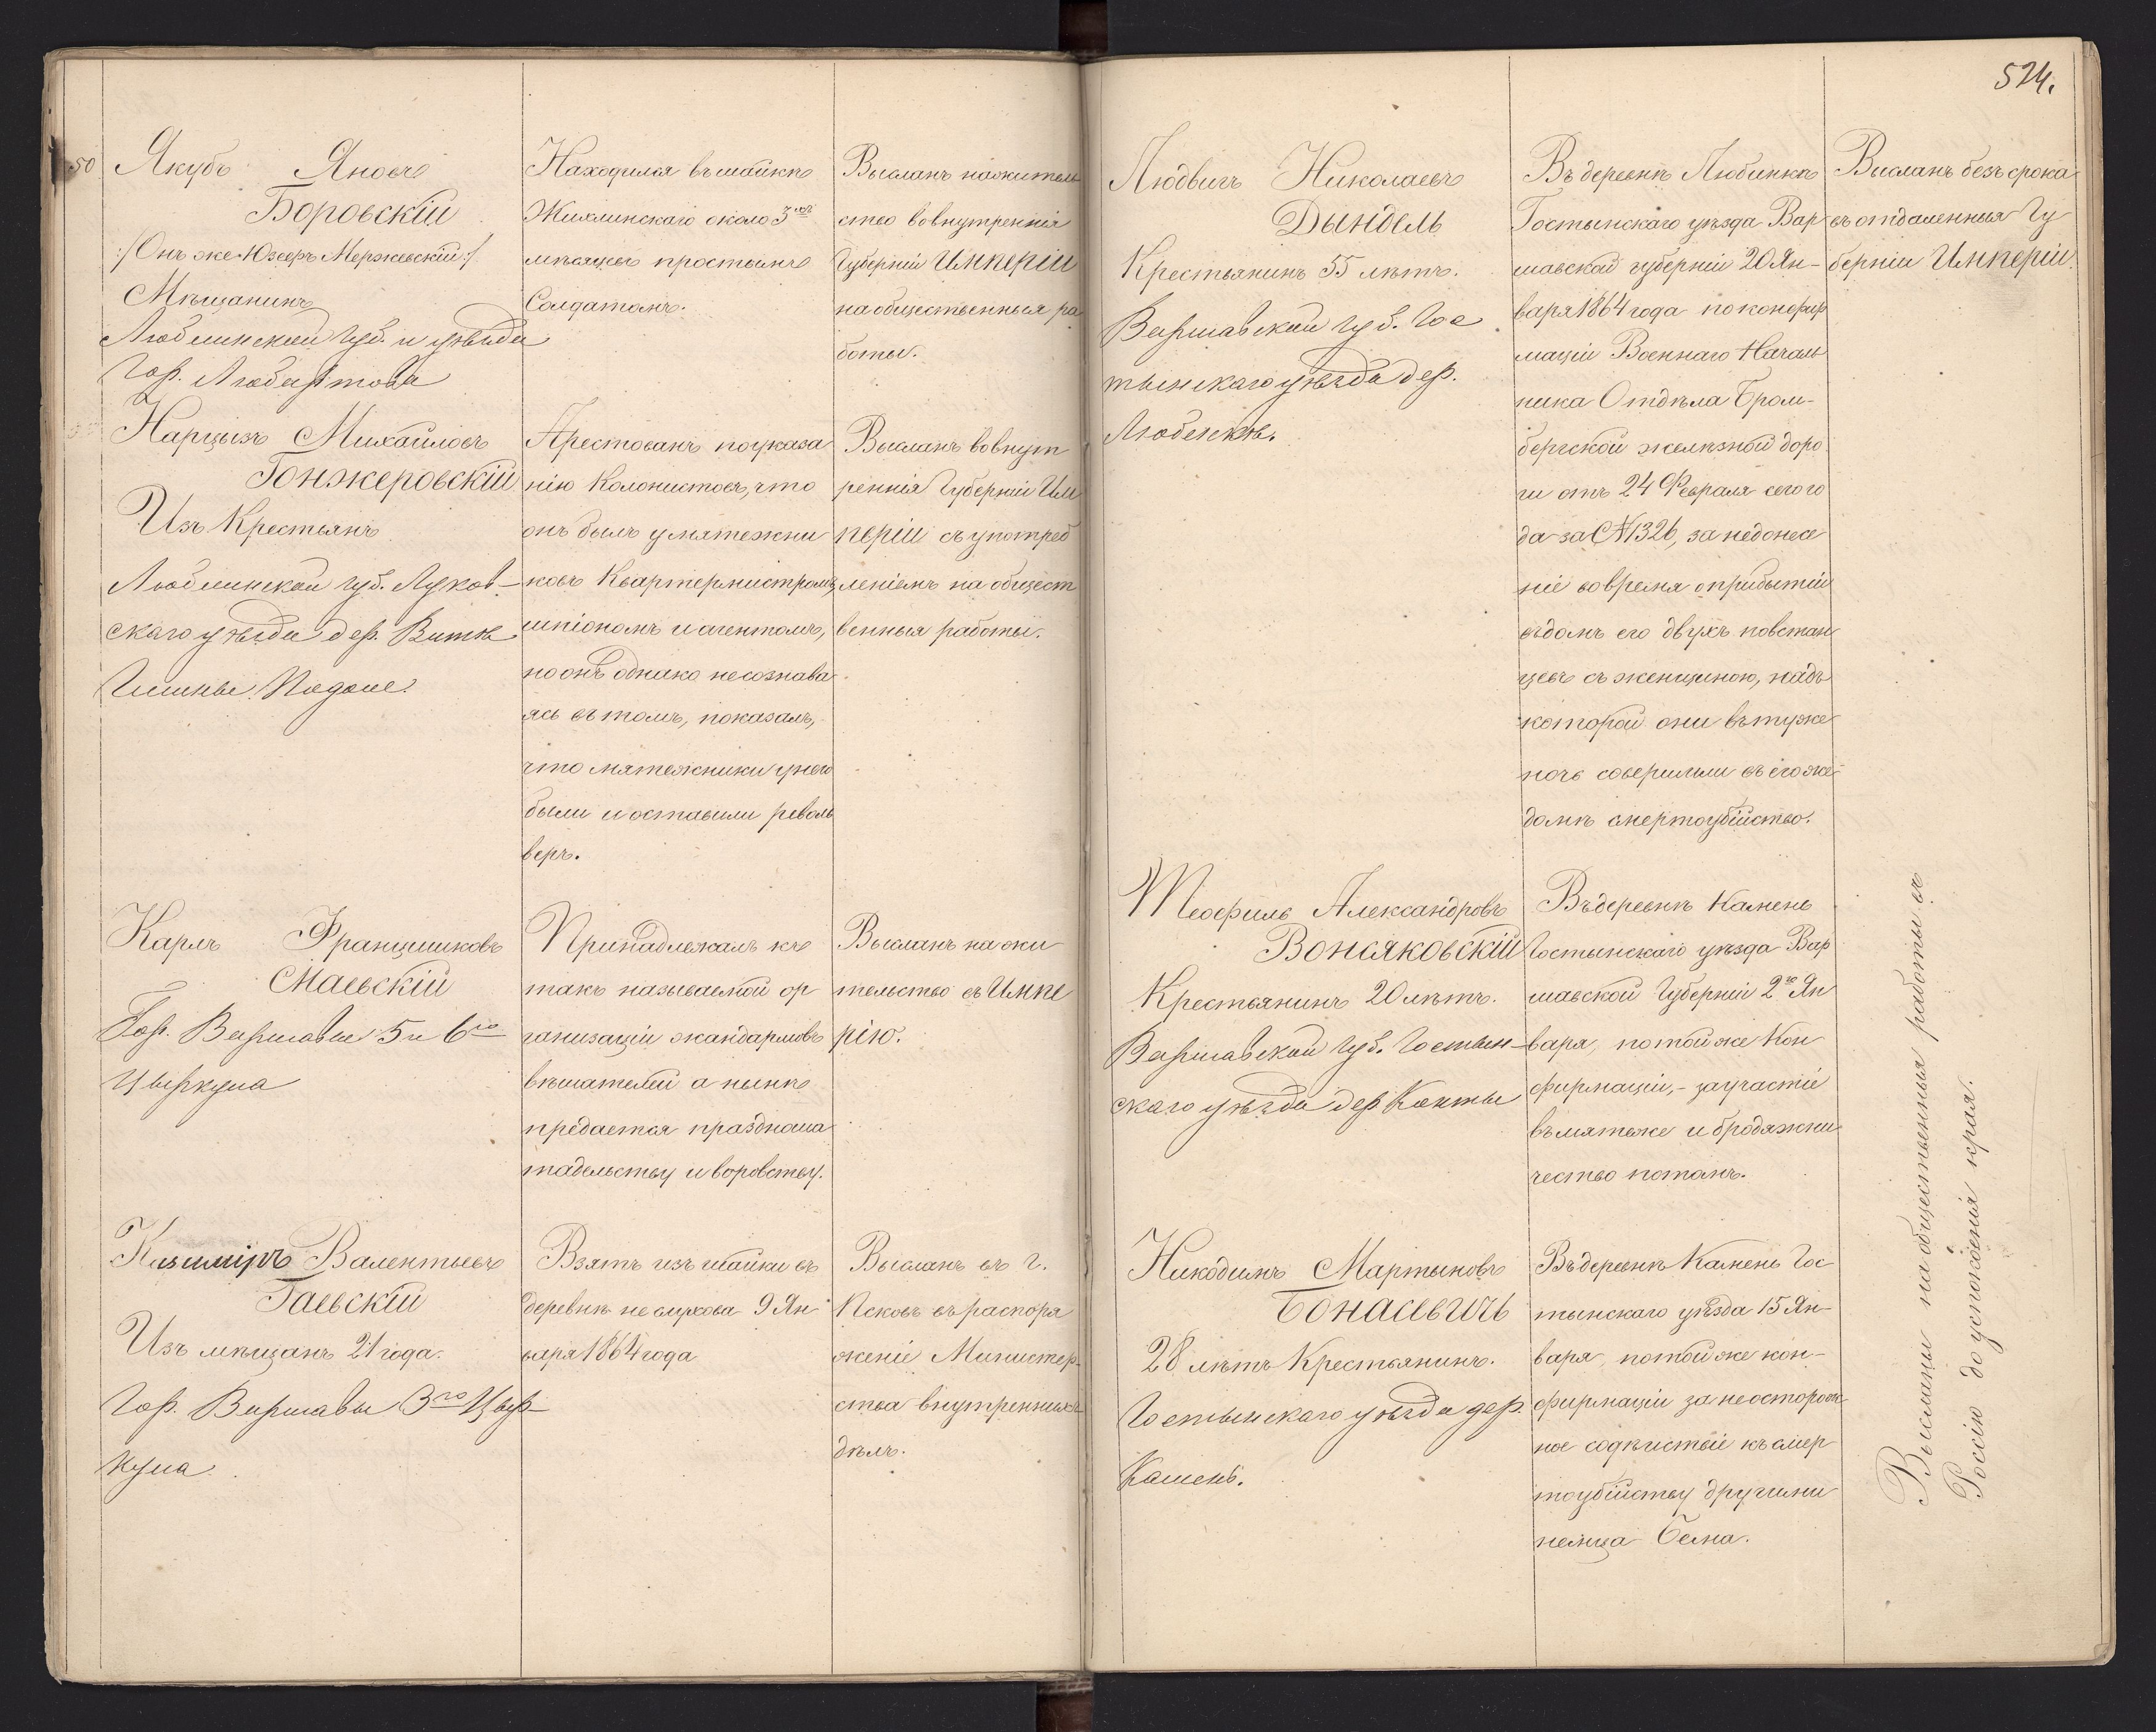 50
Якубъ Яновъ
Боровскій
:/Онъ же Юзефъ Мержевскій:/
Мѣщанинъ
Люблинской Губ. и уѣзда
Гор. Любартова
Находился въ шайкѣ
Жилинскаго около 3хъ
мѣсяцевъ простымъ
Солдатомъ.
Высланъ на житель
ство во внутреннія
Губерніи Имперіи
на общественныя ра
боты.
Нарцызъ Михайловъ
Гонжеровскій
Изъ Крестьянъ
Люблинской губ. Луков-
скаго уѣзда дер.
Гмины
Арестованъ по указа
нію Колонистовъ, что
онъ былъ у мятежни
ковъ Квартермистромъ,
шпіономъ и агентомъ,
но онъ однако не сознава
ясь въ томъ, показалъ,
что мятежники у него
были и оставили револь
веръ.
Высланъ во внут
реннія Губерніи Им
періи съ употреб
леніемъ на общест
венныя работы.
Карлъ Францишковъ
Маевскій
Гор. Варшавы 5 и 6го
Цыркула
Принадлежалъ къ
такъ называемой ор
ганизаціи жандармовъ
вѣшателей а нынѣ
предается празднаша
тадельству и воровству.
Высланъ на жи
тельство въ Импе
рію.
Казиміръ Валентьевъ
Гаевскій
Изъ мѣщанъ 21 года.
Гор. Варшавы 3го Цыр-
кула
Взятъ изъ шайки въ
деревнѣ 9 Ян
варя 1864 года
Высланъ въ г.
Псковъ въ распоря
женіе Министер-
ства внутреннихъ
дѣлъ.
524.
Людвигъ Николаевъ
Дындель
Крестьянинъ 55 лѣтъ.
Варшавской губ. Гос
тынскаго уѣзда дер.
Въ деревнѣ Любинкѣ
Гостынскаго уѣзда Вар
шавской губерніи 20 Ян-
варя 1864 года по конфир
маціи Военнаго Началь
ника Отдѣла Бром-
бергской желѣзной доро
ги отъ 24 Февраля сего го
да за № 1326, за недонесе
ніе во время о прибытіи
въ домъ его двухъ повстан
цевъ съ женщиною, надъ
которой они въ ту же
ночь совершили въ его же
домѣ смертоубійство.
Высланъ безъ срока
въ отдаленныя Гу
берніи Имперіи.
Теофиль Александровъ
Вонсяковскій
Крестьянинъ 20 лѣтъ.
Варшавской губ. Гостын-
скаго уѣзда дер.
Въ деревнѣ Камень
Гостынскаго уѣзда Вар
шавской Губерніи 2го Ян
варя, по той же Кон
фирмаціи, - за участіе
въ мятежѣ и бродяжни
чество потомъ.
Никодимъ Мартыновъ
Бонасевичъ
28 лѣтъ Крестьянинъ.
Гостынскаго уѣзда дер.
Камень.
Въ деревнѣ Камень Гос
тынскаго уѣзда 15 Ян-
варя, по той же кон-
фирмаціи за неосторож
ное содѣйствіе къ смер
тоубійству другими
немца Бема.
Высланы на общественныя работы въ
Россію до успокоенія края.